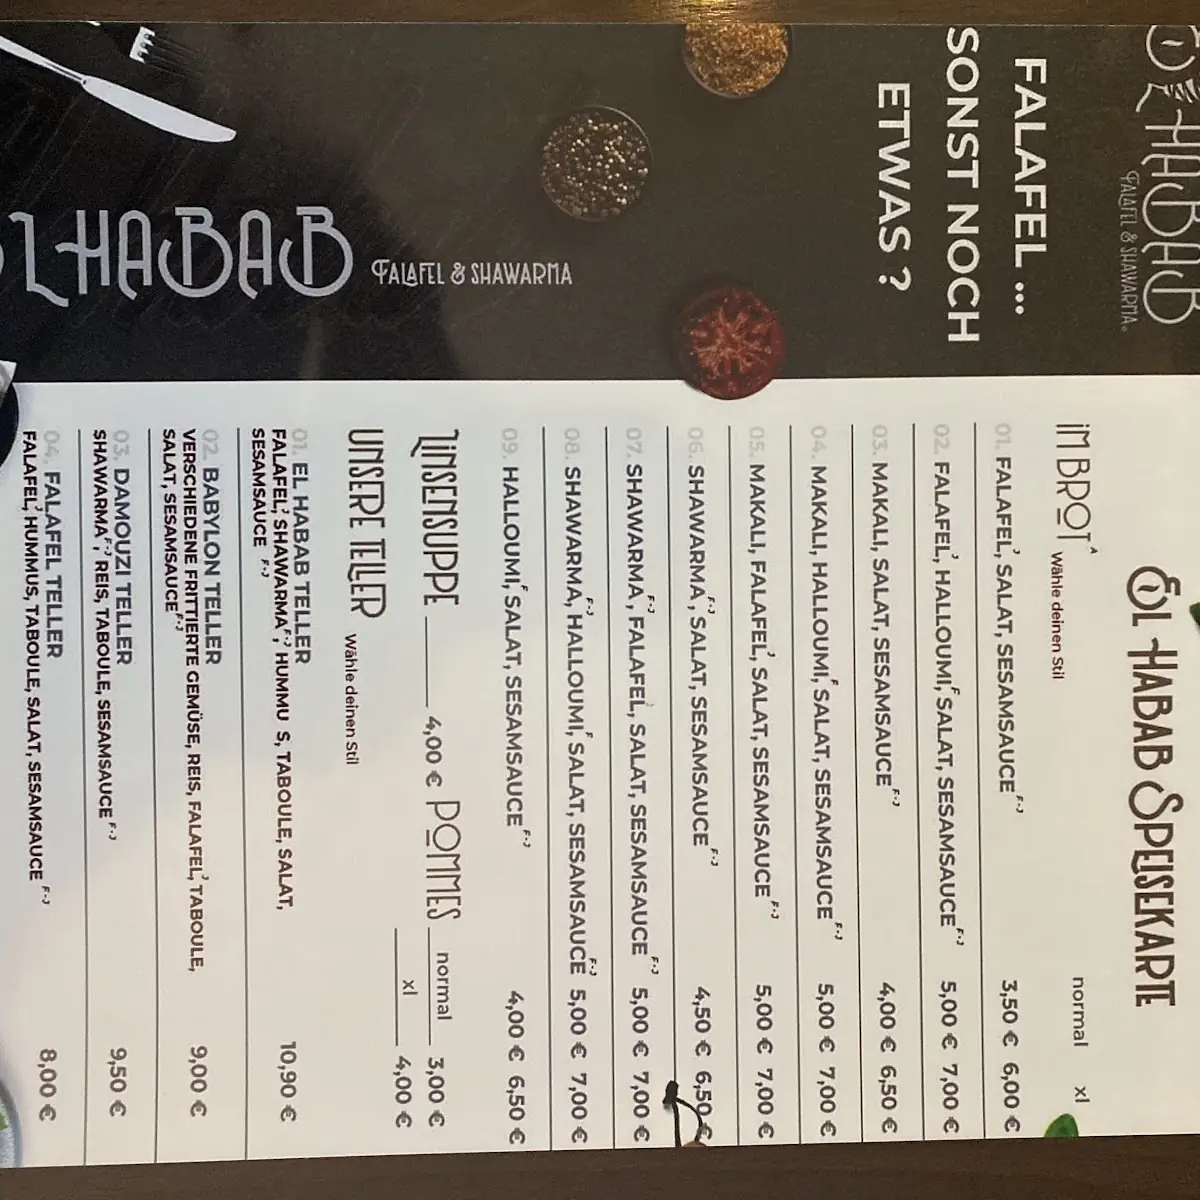 HABAB
FALAFEL & SHAWARMA
FALAFEL ...
SONST NOCH
ETWAS ?
LHABAB
FALAFEL & SHAWARMA
EL HABAB SPEISEKARTE
IM BROT A Wähle deinen Stil normal xl
01. FALAFEL,J SALAT, SESAMSAUCE F+J 3,50 € 6,00 €
02. FALAFEL,J HALLOUMI,F SALAT, SESAMSAUCE F+J 5,00 € 7,00 €
03. MAKALI, SALAT, SESAMSAUCE F+J 4,00 € 6,50 €
04. MAKALI, HALLOUMI,F SALAT, SESAMSAUCE F+J 5,00 € 7,00 €
05. MAKALI, FALAFEL,J SALAT, SESAMSAUCE F+J 5,00 € 7,00 €
06. SHAWARMA F+J, SALAT, SESAMSAUCE F+J 4,50 € 6,50 €
07. SHAWARMA F+J, FALAFEL,J SALAT, SESAMSAUCE F+J 5,00 € 7,00 €
08. SHAWARMA, F+J HALLOUMI,F SALAT, SESAMSAUCE F+J 5,00 € 7,00 €
09. HALLOUMI,F SALAT, SESAMSAUCE F+J 4,00 € 6,50 €
LINSENSUPPE 4,00 € POMMES normal 3,00 €
xl 4,00 €
UNSERE TELLER Wähle deinen Stil
01. EL HABAB TELLER
FALAFEL,J SHAWARMA F+J, HUMMU S, TABOULE, SALAT, 10,90 €
SESAMSAUCE F+J
02. BABYLON TELLER
VERSCHIEDENE FRITTIERTE GEMÜSE, REIS, FALAFEL,J TABOULE, 9,00 €
SALAT, SESAMSAUCE F+J
03. DAMOUZI TELLER
SHAWARMA F+J, REIS, TABOULE, SESAMSAUCE F+J 9,50 €
04. FALAFEL TELLER
FALAFEL,J HUMMUS, TABOULE, SALAT, SESAMSAUCE F+J 8,00 €